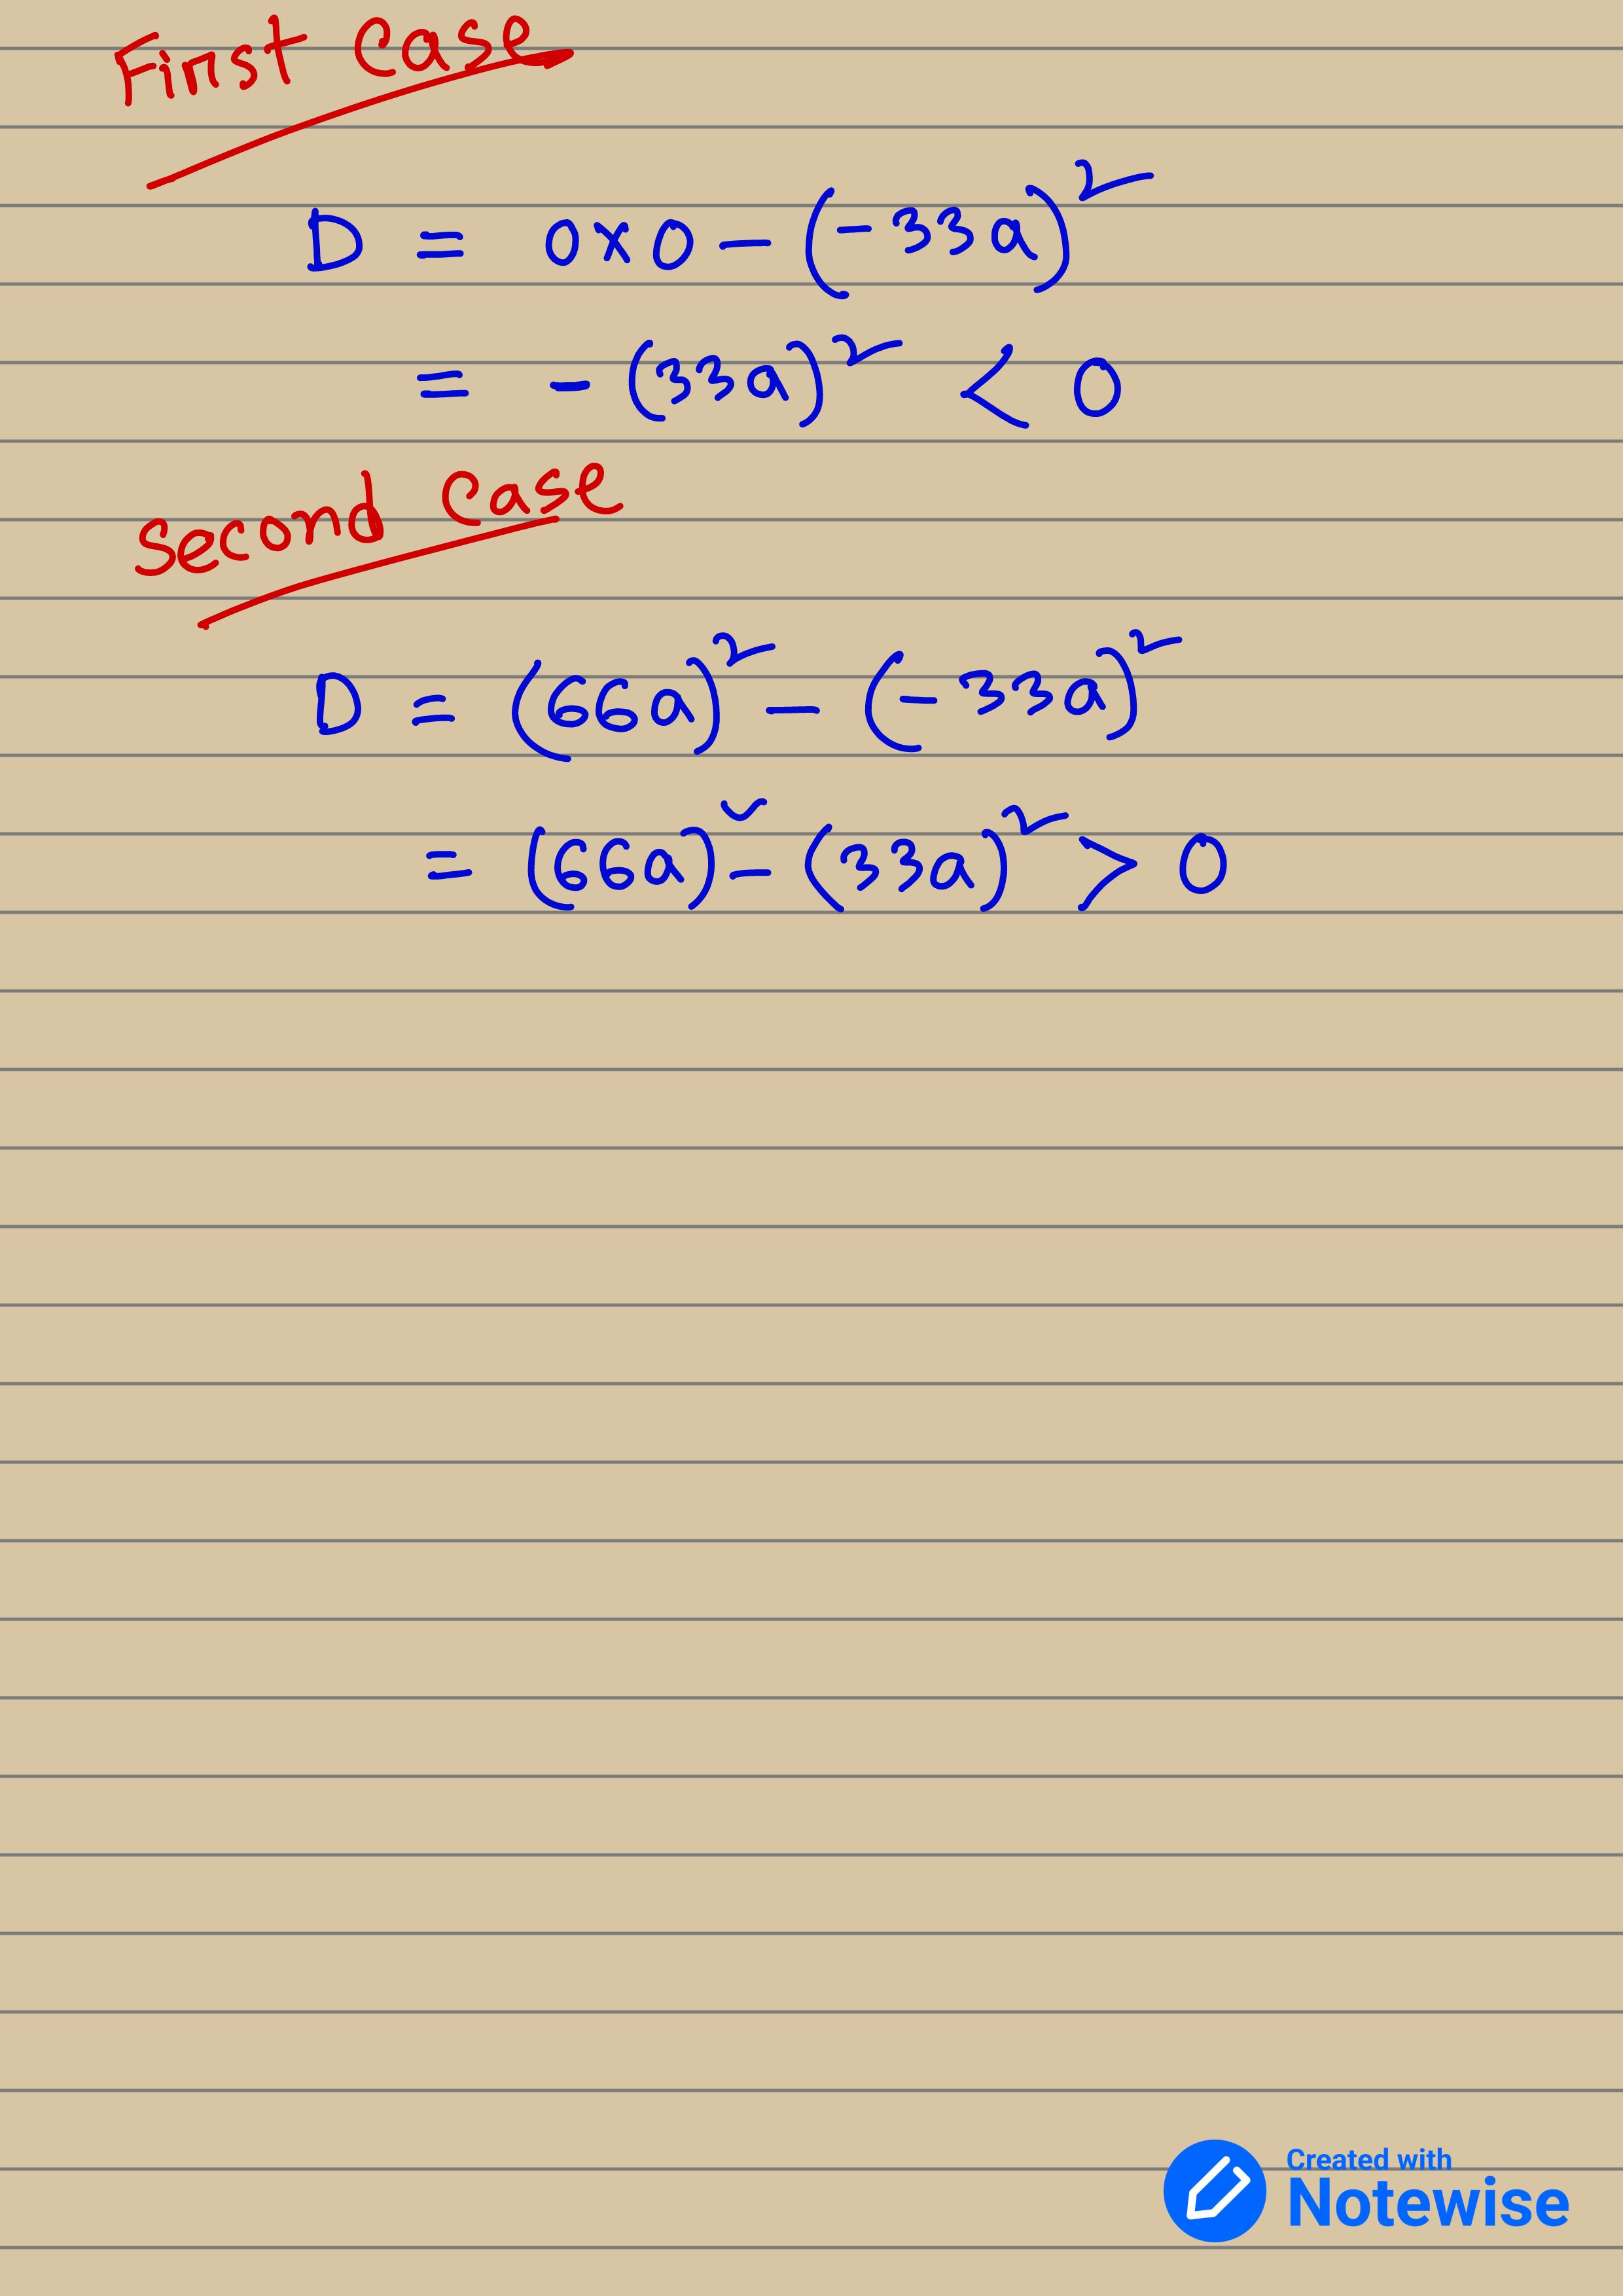 First Case
D = 0×0 – (-33a)²
= - (33a)² < 0
Second Case
D = (66a)² – (-33a)²
= (66a)˅ – (33a)² > 0
Created with
Notewise